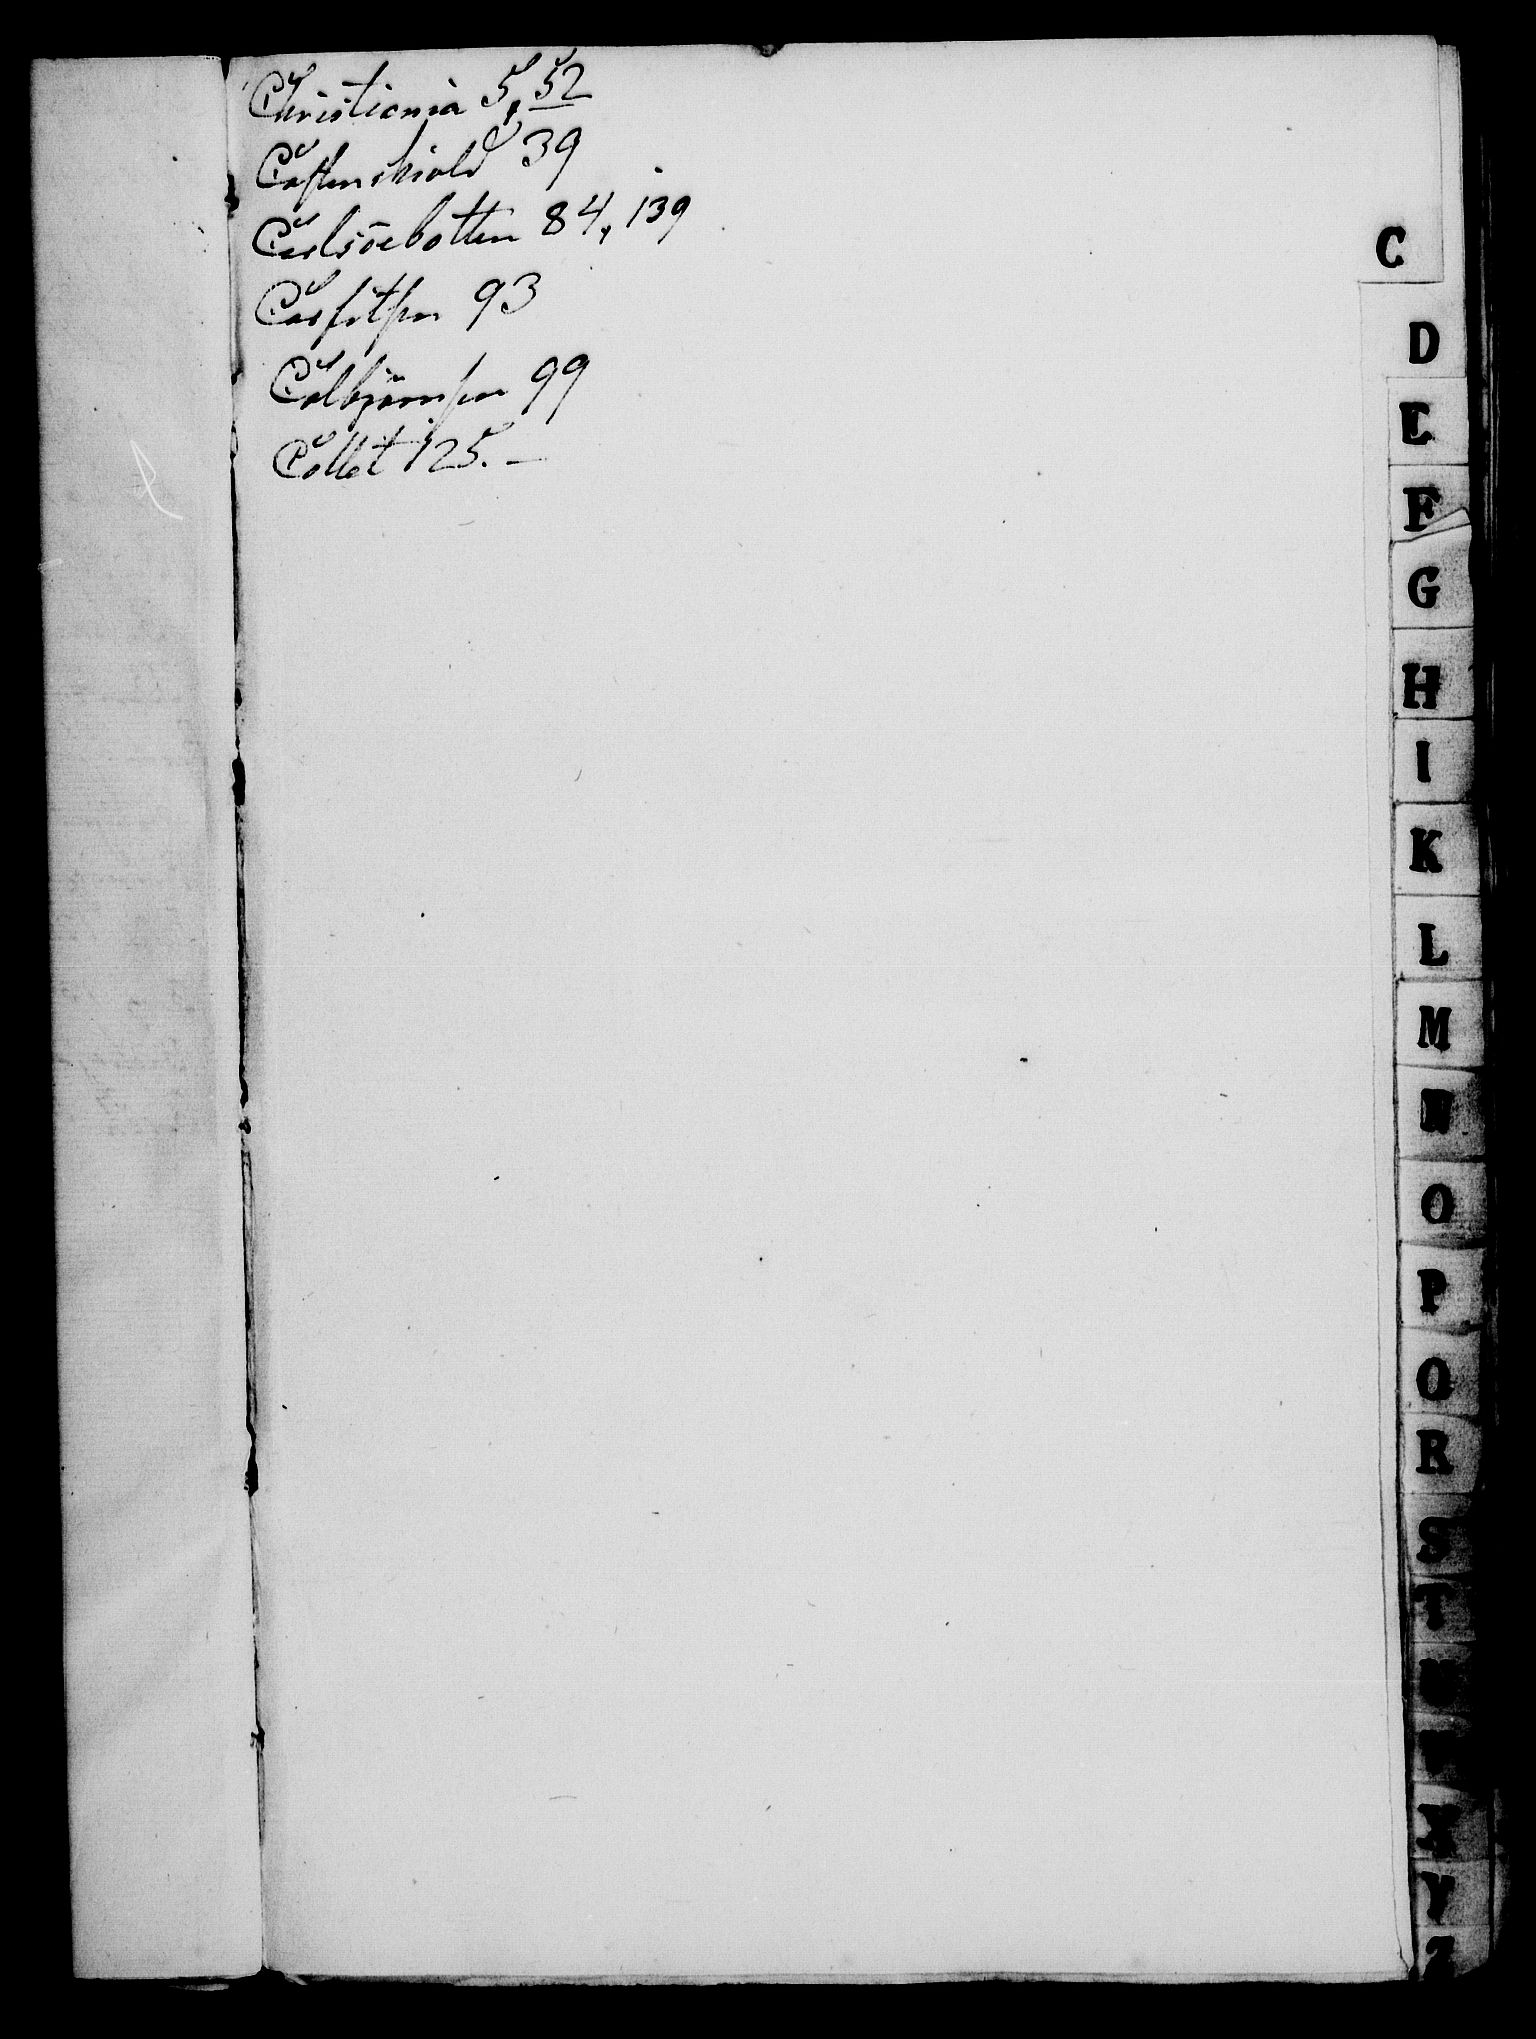 Christiania 5, 52
Castenskiold 39
Carlsöebotten 84, 139
93
Colbjörnsen 99
Collet 125. –
C
D
E
F
G
H
I
K
L
M
N
O
P
Q
R
S
T
U
V
X
Y
Z